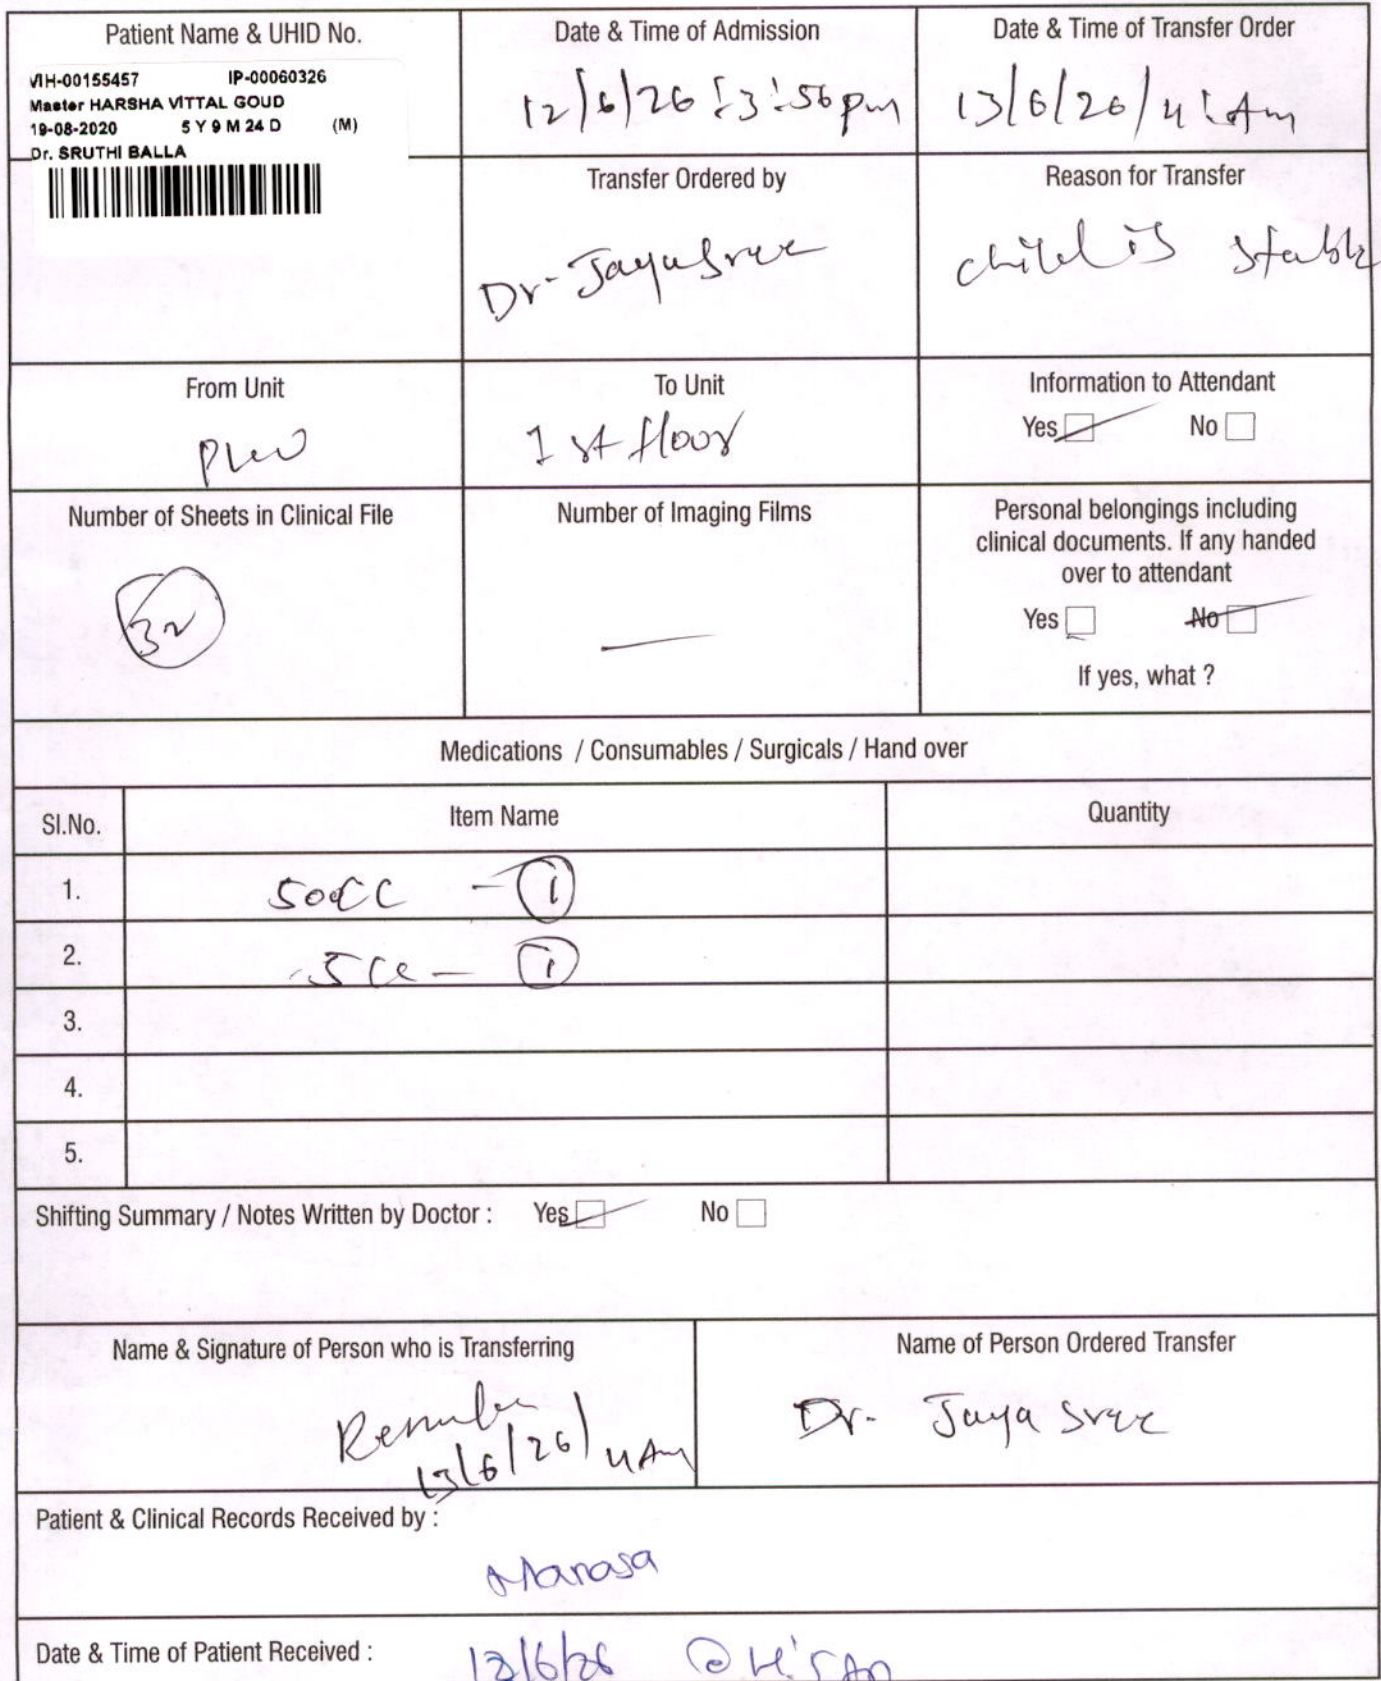 Patient Name & UHID No.
VIH-00155457 IP-00060326
Master HARSHA VITTAL GOUD
19-08-2020 5 Y 9 M 24 D (M)
Dr. SRUTHI BALLA
Date & Time of Admission
12/6/26 : 3:56pm
Date & Time of Transfer Order
13/6/26/ 4:Am
Transfer Ordered by
Dr- Jayasree
Reason for Transfer
child is stable
From Unit
To Unit
1st floor
Information to Attendant
Yes No
Number of Sheets in Clinical File
32
Number of Imaging Films
—
Personal belongings including
clinical documents. If any handed
over to attendant
Yes No
If yes, what ?
Medications / Consumables / Surgicals / Hand over
Sl.No. Item Name Quantity
1. 50CC - 1
2. 5cc - 1
3.
4.
5.
Shifting Summary / Notes Written by Doctor : Yes No
Name & Signature of Person who is Transferring
Renuka
13/6/26/ 4Am
Name of Person Ordered Transfer
Dr- Jaya Sree
Patient & Clinical Records Received by :
Manasa
Date & Time of Patient Received :
13/6/26 @